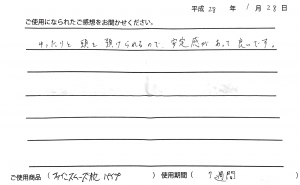 平成 28 年 1 月 28 日
ご使用になられたご感想をお聞かせください。
ゆったりと 頭を 預けられるので、安定感が あって 良いです。
ご使用商品 ( 枕 パイプ ) 使用期間 ( 1週間 )